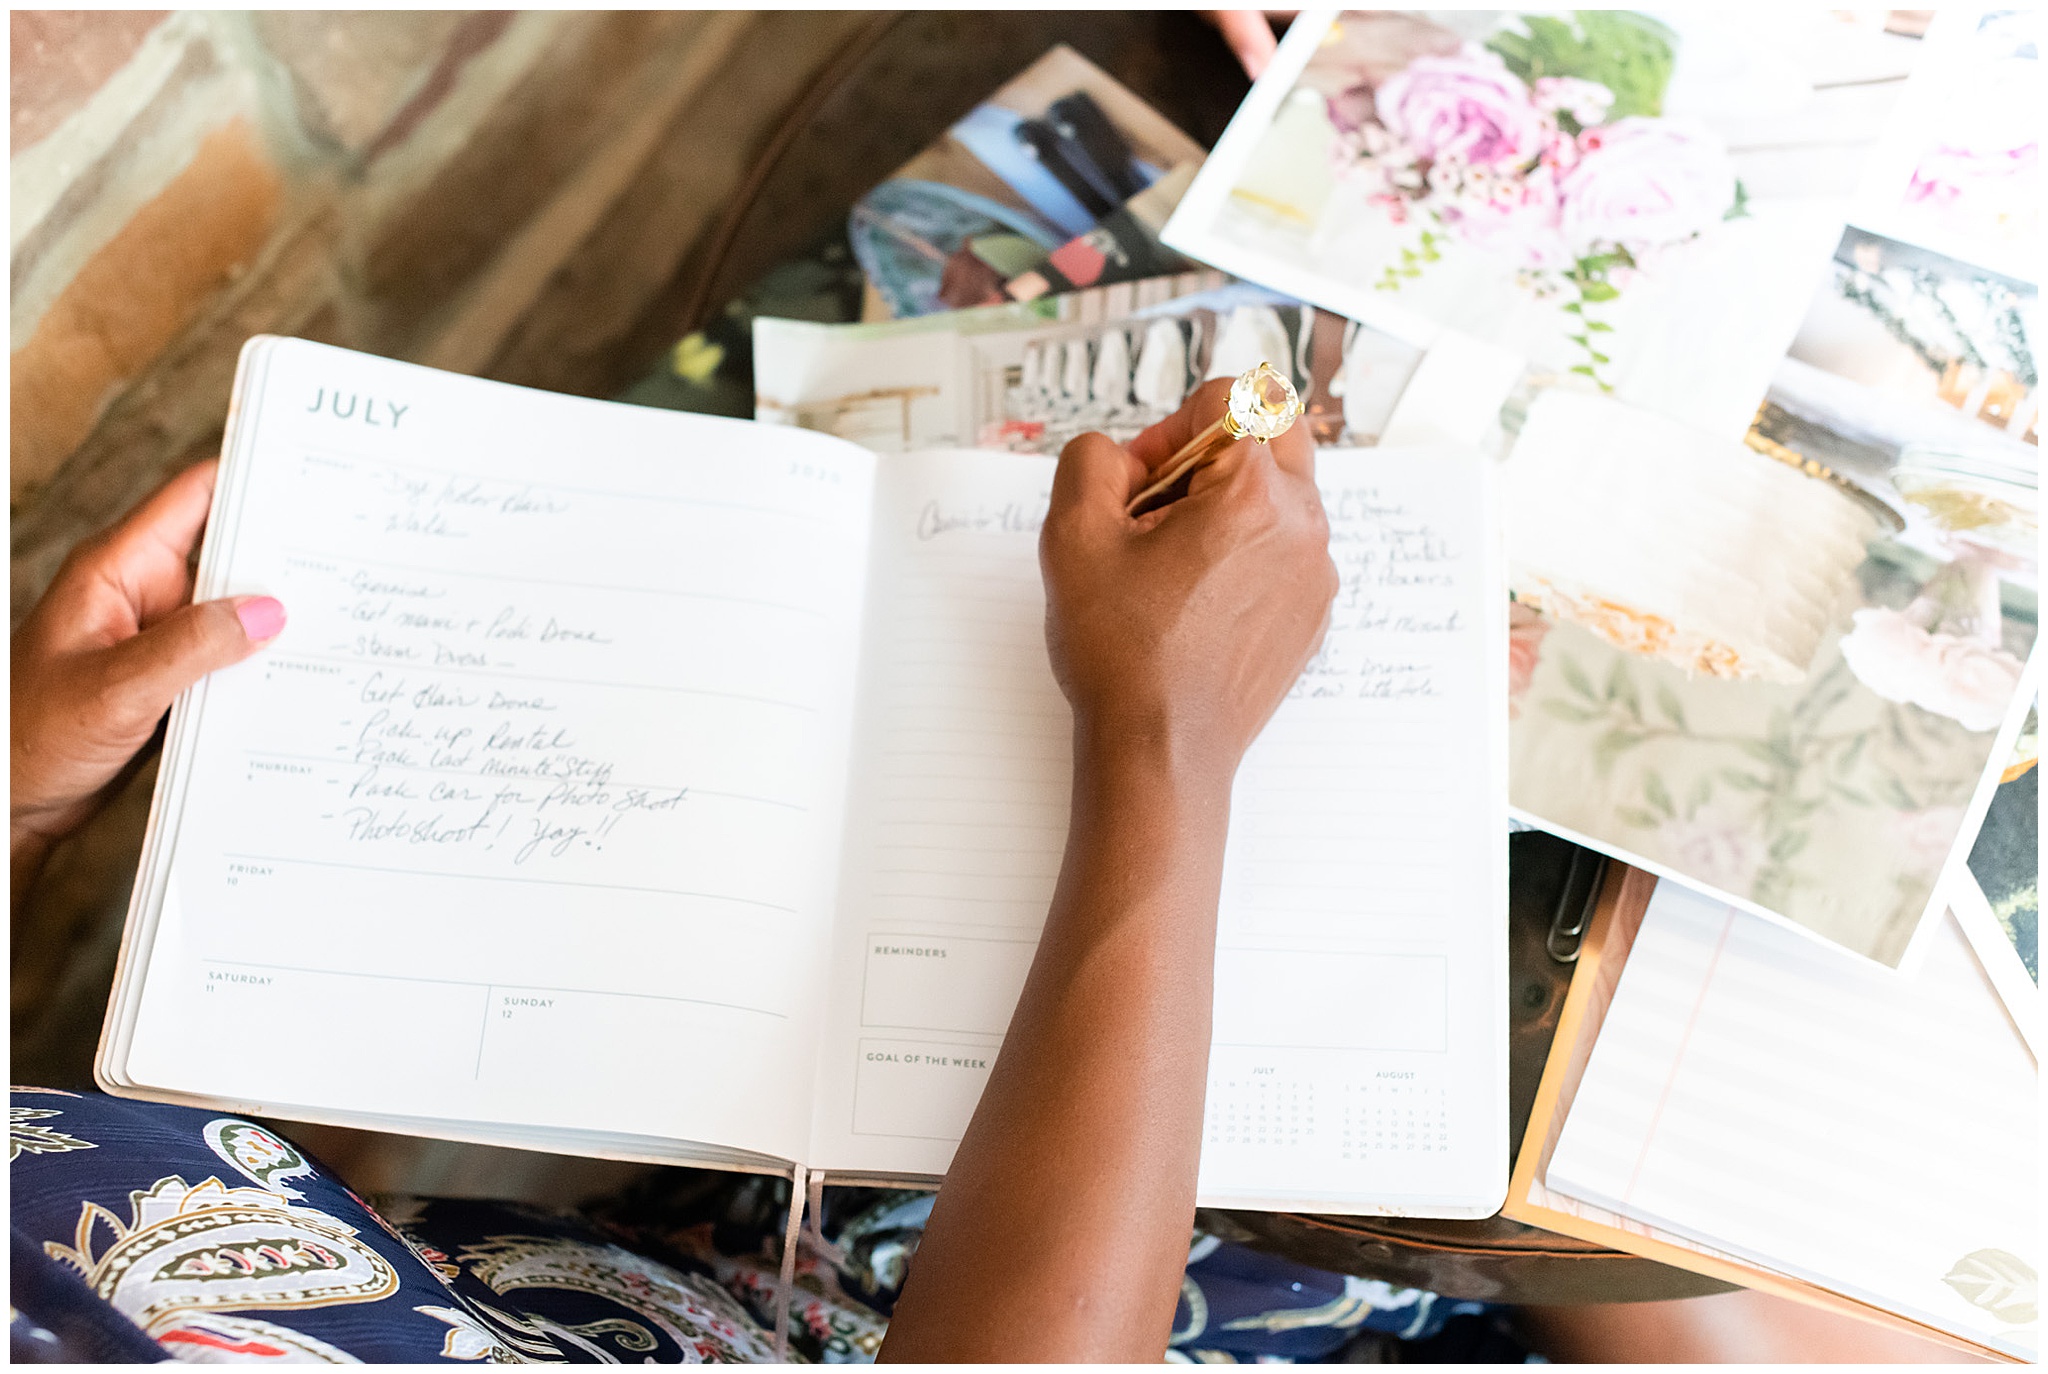 JULY
2020
MONDAY
6
- Dye /color Hair
- Walk
TUESDAY
7
- Exercise
- Get mani + Pedi Done
- Steam Dress
WEDNESDAY
8
- Get Hair Done
- Pick up Rental
- Pack "last minute" Stuff
THURSDAY
9
- Pack car for Photo Shoot
- Photoshoot! Yay!!
FRIDAY
10
SATURDAY
11
SUNDAY
12
up Rental
flowers
last minute
Dress
Sew little hole
REMINDERS
GOAL OF THE WEEK
JULY
AUGUST